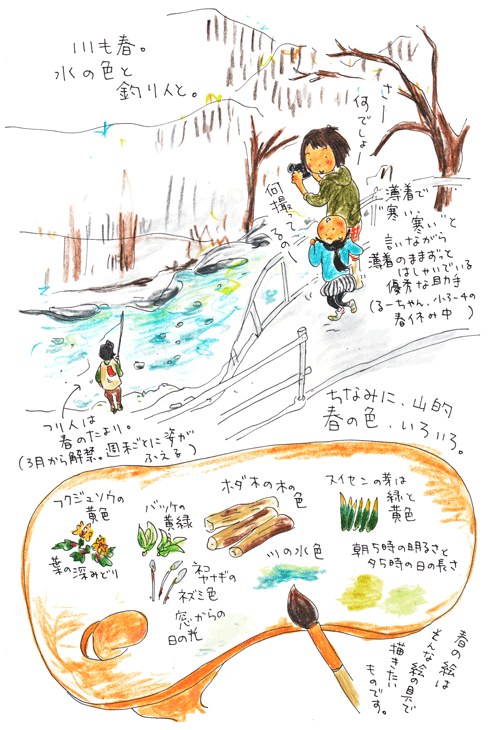 川も春。
水の色と
釣り人と。
さー
何でしょー
何撮ってるの
薄着で
"寒い、寒い"と
言いながら
薄着のままずっと
はしゃいでいる
優秀な助手
(るーちゃん、小3〜4の
春休み中)
つり人は
春のたより。
(3月から解禁。週末ごとに姿が
ふえる)
ちなみに、山的
春の色、いろいろ。
フクジュソウの
黄色
葉の深みどり
バッケの
黄緑
ネコ
ヤナギの
ネズミ色
窓からの
日の光
ホダ木の木の
色
川の水色
スイセンの芽は
緑と
黄色
朝5時の明るさと
夕5時の日の長さ
春の絵は
こんな絵の具で
描きたい
ものです。